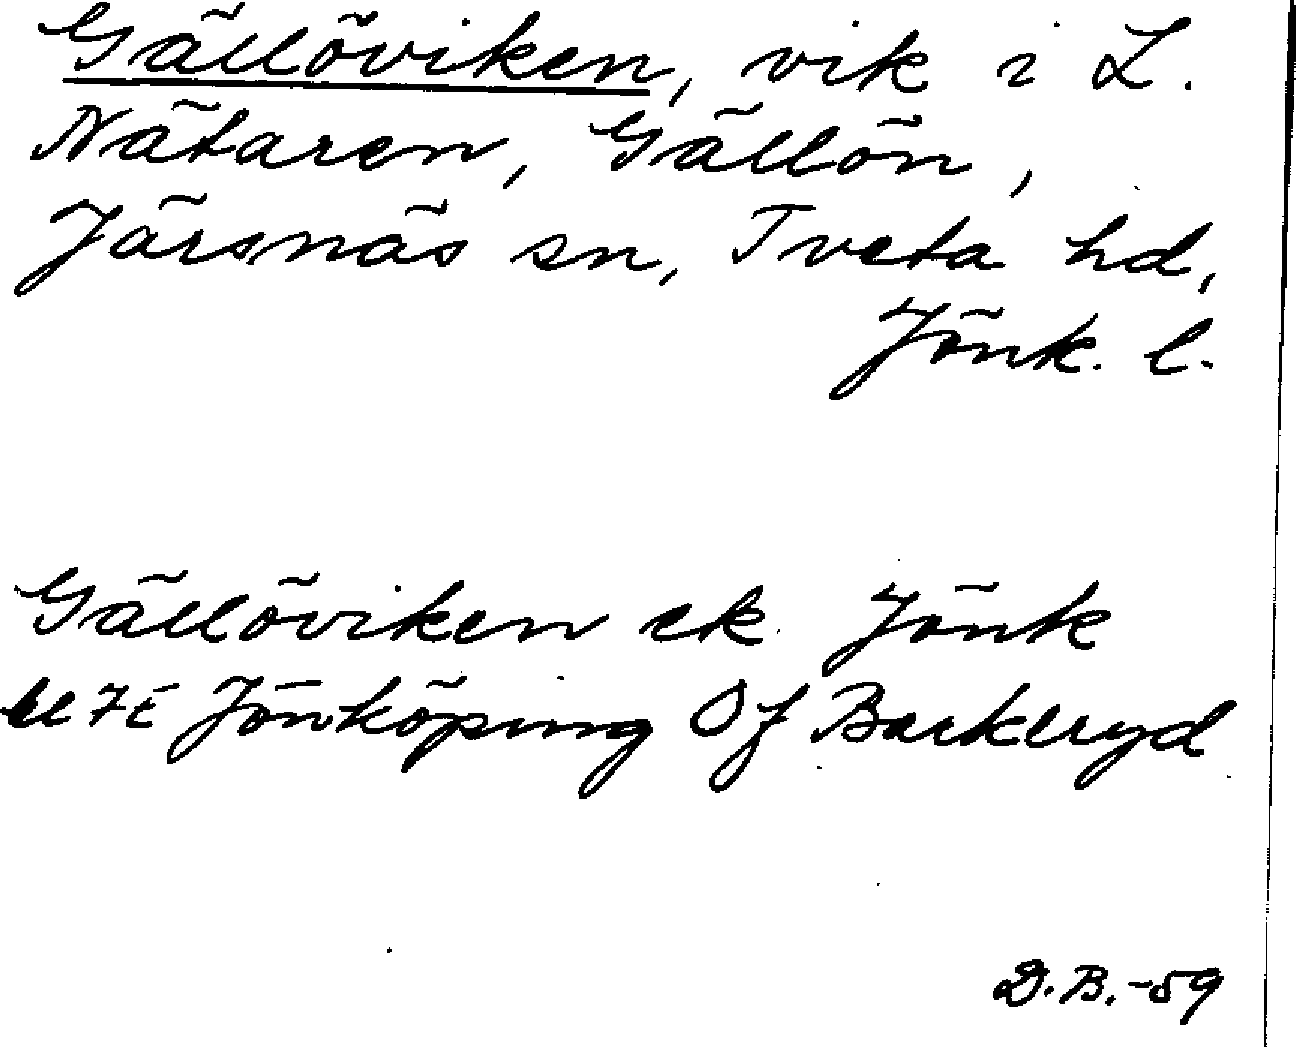 Gällöviken, vik i L.
Nätaren, Gällön,
Järsnäs sn, Tveta hd,
Jönk. l.
Gällöviken ek. Jönk
7E Jönköping Of Barkeryd
D.B.-59